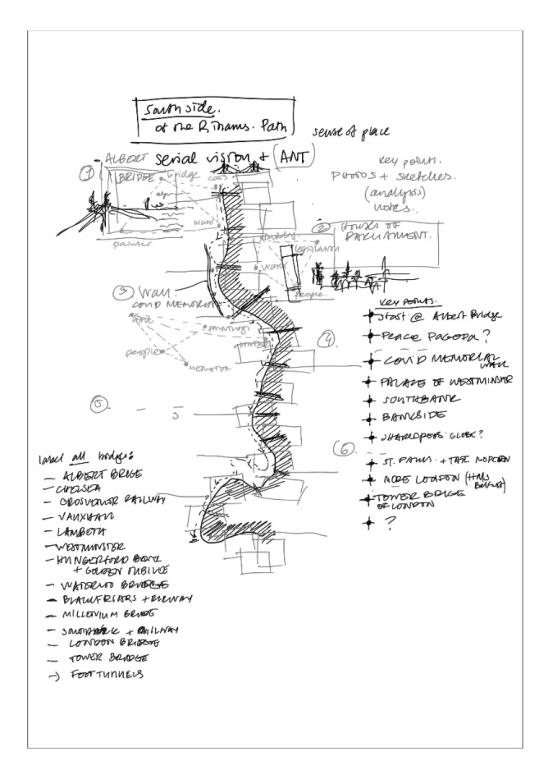 South side.
of the R. Thams. Path
sense of place
serial vision + (ANT)
① ALBERT BRIDGE
bridge
key points.
PHOTOS + sketches.
(analysis)
notes.
painter
② HOUSES OF PARLIAMENT.
wall
people
③ Wall
COVID MEMORIAL
paintings
people
memories
④
⑤
⑥
key points.
Start @ Albert Bridge
PEACE PAGODA?
COVID MEMORIAL WALL
PALACE OF WESTMINSTER
SOUTHBANK
BANKSIDE
ST. PAULS + THE MODERN
MORE LONDON (HMS Belfast)
TOWER BRIDGE OF LONDON
?
label all bridges
- ALBERT BRIGE
- CHELSEA
- GROSVENOR RAILWAY
- VAUXHALL
- LAMBETH
- WESTMINSTER
- HUNGERFORD BRIDGE
+ GOLDEN JUBILEE
- WATERLOO BRIDGE
- BLACKFRIARS + RAILWAY
- MILLENIUM BRIDGE
- SOUTHWARK + RAILWAY
- LONDON BRIDGE
- TOWER BRIDGE
→ FOOT TUNNELS